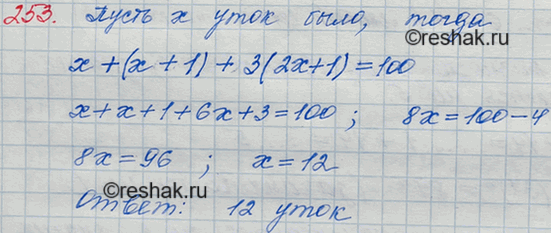 253. Пусть x уток было, тогда
x + (x + 1) + 3(2x+1) = 100
x + x + 1 + 6x + 3 = 100 ; 8x = 100 - 4
8x = 96 ; x = 12
©reshak.ru
Ответ: 12 уток
©reshak.ru